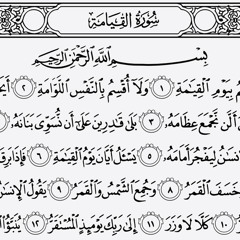 سُورَةُ القِيَامَةِ
بِسْمِ اللَّهِ الرَّحْمَنِ الرَّحِيمِ
مُ بِيَوْمِ الْقِيَامَةِ ١ وَلَا أُقْسِمُ بِالنَّفْسِ اللَّوَّامَةِ ٢ أَيَحْ
أَلَّن نَّجْمَعَ عِظَامَهُ ٣ بَلَىٰ قَادِرِينَ عَلَىٰ أَن نُّسَوِّيَ بَنَانَهُ
نسَانُ لِيَفْجُرَ أَمَامَهُ ٥ يَسْئَلُ أَيَّانَ يَوْمُ الْقِيَامَةِ ٦ فَإِذَا بَرِقَ
خَسَفَ الْقَمَرُ ٨ وَجُمِعَ الشَّمْسُ وَالْقَمَرُ ٩ يَقُولُ الْإِنسَ
١٠ كَلَّا لَا وَزَرَ ١١ إِلَىٰ رَبِّكَ يَوْمَئِذٍ الْمُسْتَقَرُّ ١٢ يُنَبَّؤُا